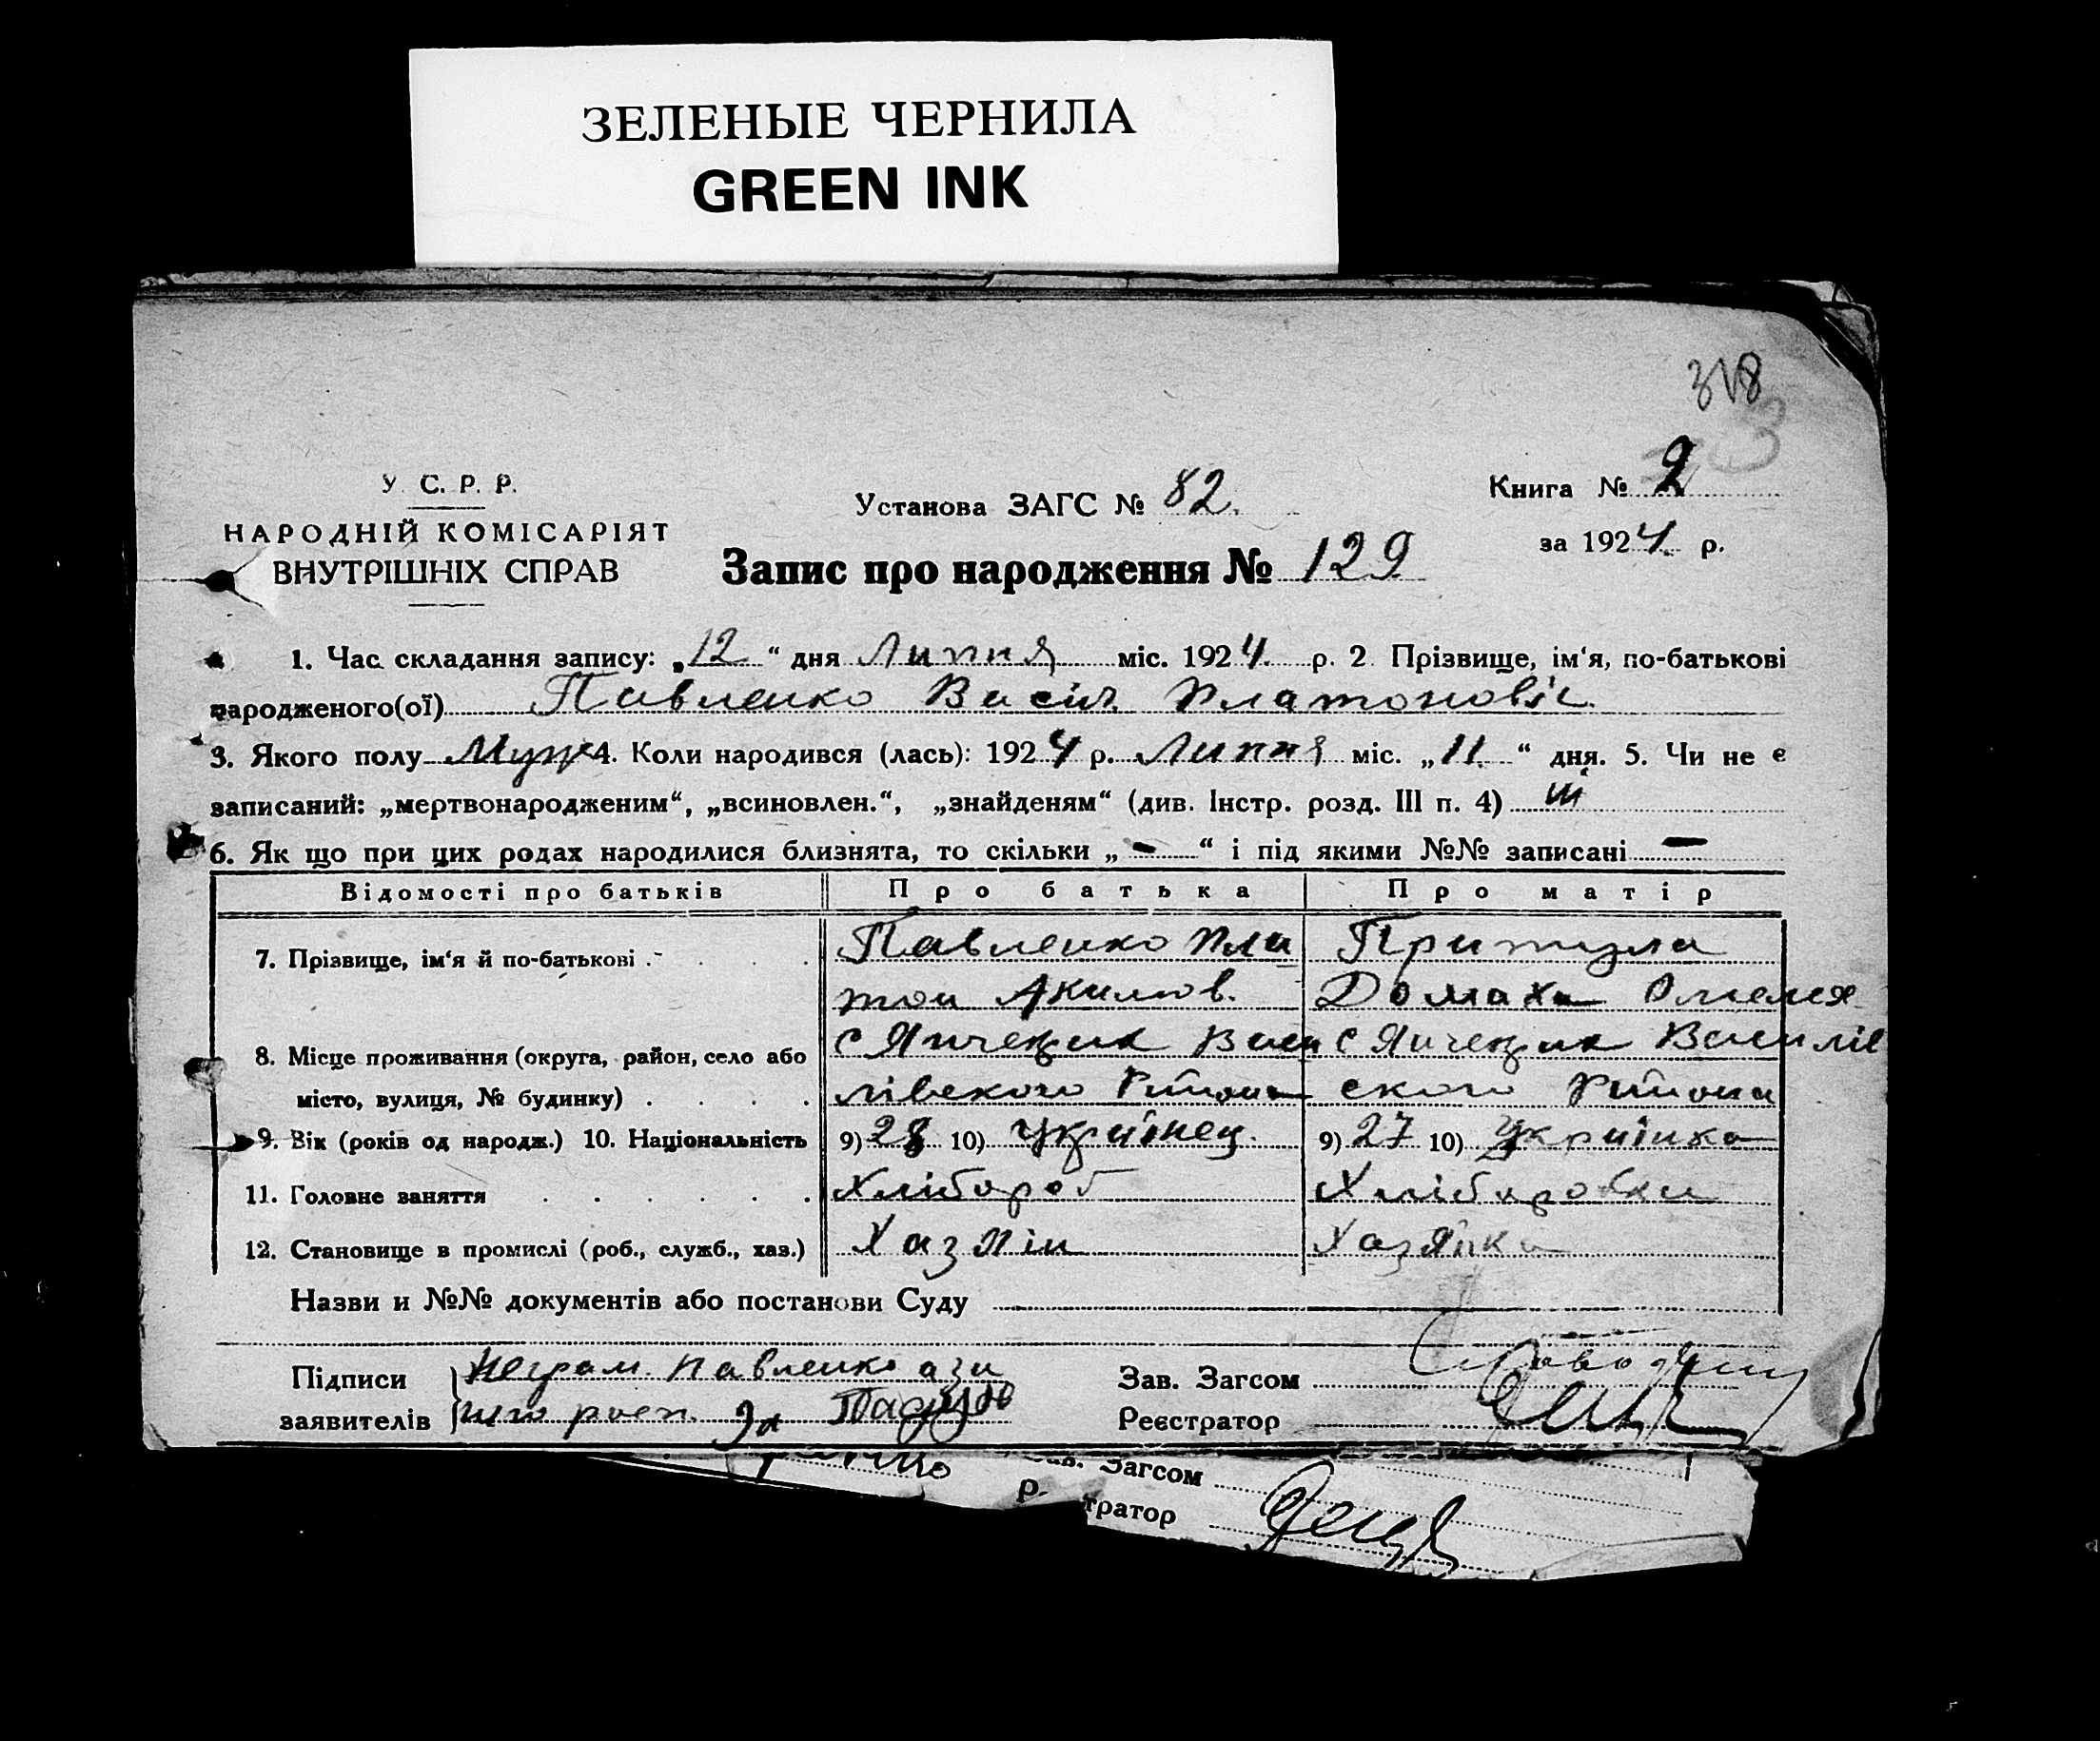 ЗЕЛЕНЫЕ ЧЕРНИЛА
GREEN INK
318
У. С. Р. Р.
НАРОДНІЙ КОМІСАРІЯТ
ВНУТРІШНІХ СПРАВ
Установа ЗАГС № 82.
Книга № 2
за 1924. р.
Запис про народження № 129
1. Час складання запису: „12“ дня Липня міс. 1924. р. 2. Прізвище, ім‘я, по-батькові
народженого(ої) Павленко Васіл Платоновіч
3. Якого полу Муж 4. Коли народився (лась): 1924 р. Липня міс. „11“ дня. 5. Чи не є
записаний: „мертвонародженим“, „всиновлен.“, „знайденям“ (див. Інстр. розд. III п. 4) ні
6. Як що при цих родах народилися близнята, то скільки „-“ і під якими №№ записані -
Відомості про батьків Про батька Про матір
7. Прізвище, ім‘я й по-батькові Павленко Пла Притула
тон Акимов. Домаха Омеля
8. Місце проживання (округа, район, село або с Янчекрак Васи с Янчекрак Василів
місто, вулиця, № будинку) лівського Району ського Району
9. Вік (років од народж.) 10. Національність 9) 28 10) Українец. 9) 27 10) Українка
11. Головне заняття Хлібороб Хліборобка
12. Становище в промислі (роб., служб., хаз.) Хазяін Хазяйка
Назви и №№ документів або постанови Суду
Підписи Неграм. Павленко а за
заявителів него росп.
Зав. Загсом
Реєстратор
Загсом
тратор